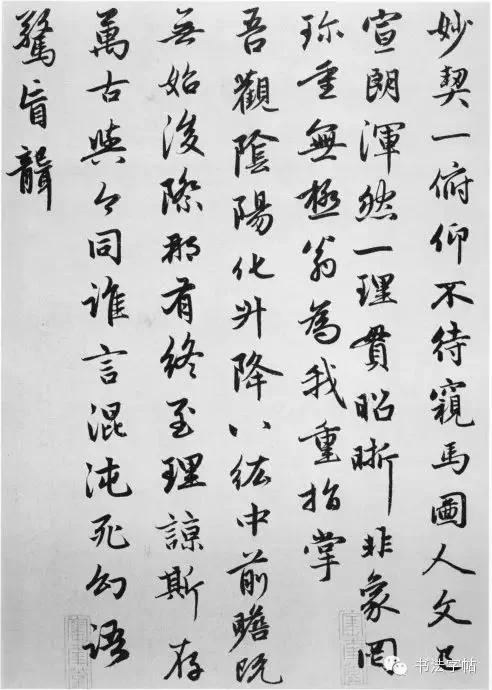 妙契一俯仰不待窺馬圖人文已
宣朗渾然一理貫昭晰非象罔
珎重無極翁為我重指掌
吾觀陰陽化升降八紘中前瞻既
無始後際那有終至理諒斯存
萬古與今同誰言混沌死幻語
驚盲聾
书法字帖